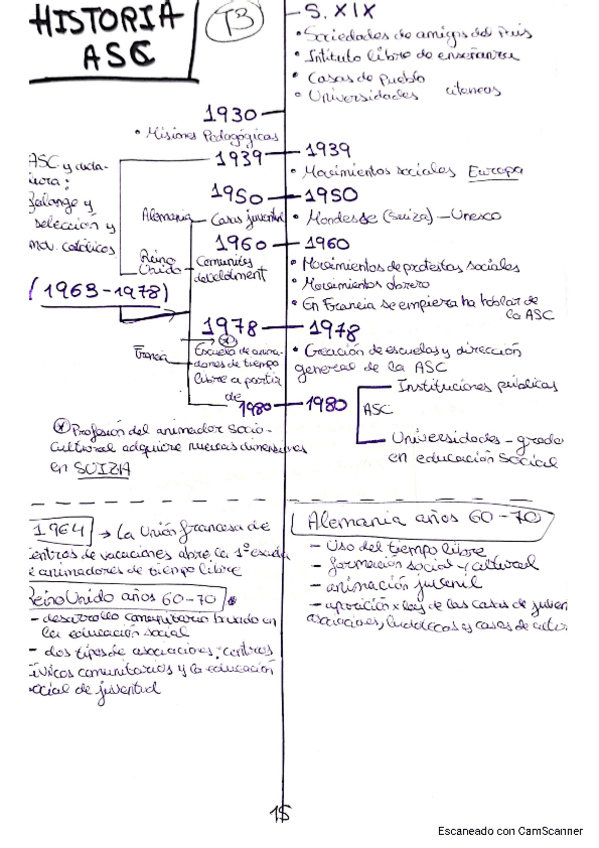 HISTORIA
ASC
T3
S. XIX
• Sociedades de amigos del País
• Intituto libre de enseñanza
• Casas de pueblo
• Universidades ateneos
1930
• Misiones Pedagógicas
1939
1939
• Movimientos sociales Europa
ASC y dicta-
dura:
falange y
selección y
mov. católicos
1950
1950
Alemania
Casas juventud
• Mondesse (Suiza) - Unesco
1960
1960
Reino
Unido
Comunity
develotment
• Movimientos de protestas sociales
• Movimientos obrero
• En Francia se empieza ha hablar de
la ASC
(1963-1978)
1978
1978
Francia
Escuela de anima-
dores de tiempo
libre a partir
de
• Creación de escuelas y dirección
general de la ASC
1980
1980
ASC
Instituciones públicas
Universidades - grado
en educación social
* Profesión del animador socio-
cultural adquiere nuevas dimensiones
en SUIZA
1964 → La Unión francesa de
centros de vacaciones abre la 1º escuela
de animadores de tiempo libre
Reino Unido años 60-70
- desarrollo comunitario basado en
la educación social
- dos tipos de asociaciones: centros
cívicos comunitarios y la educación
social de juventud
Alemania años 60-70
- Uso del tiempo libre
- formación social y cultural
- animación juvenil
- aparición x ley de las casas de juven
asociaciones, ludotecas y casas de cultur
15
Escaneado con CamScanner